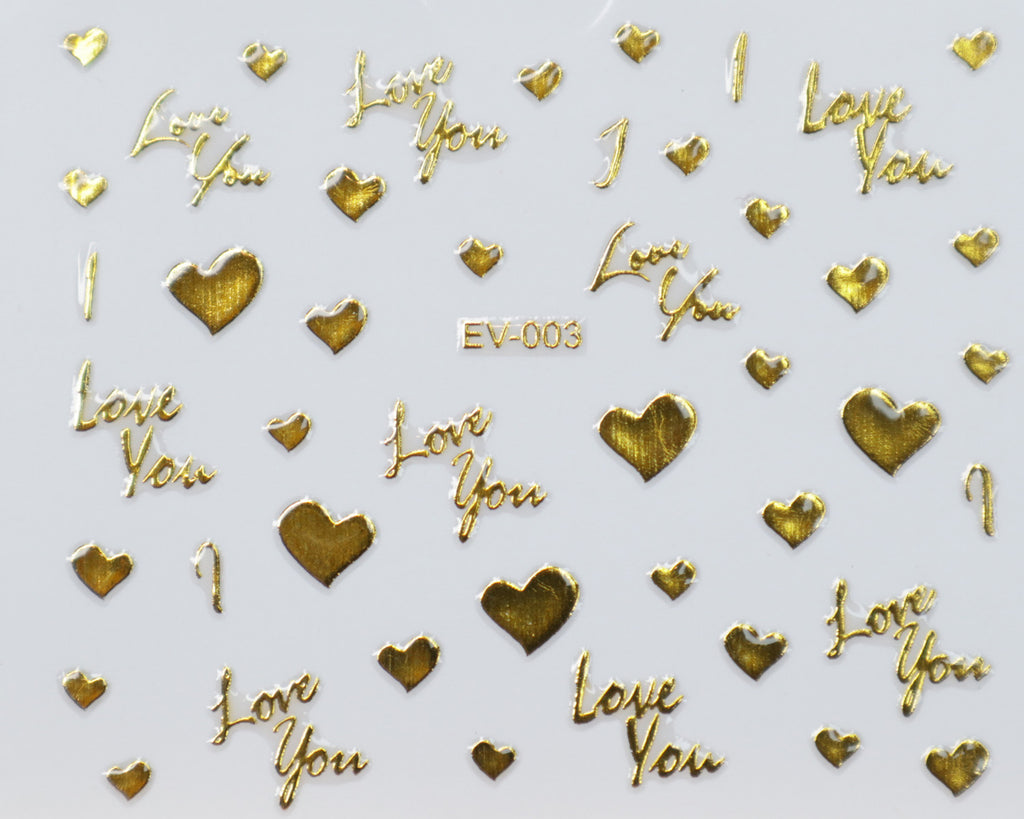 I
Love
You
Love
You
Love
You
I
Love
You
I
EV-003
Love
You
Love
You
I
I
Love
You
Love
You
Love
You